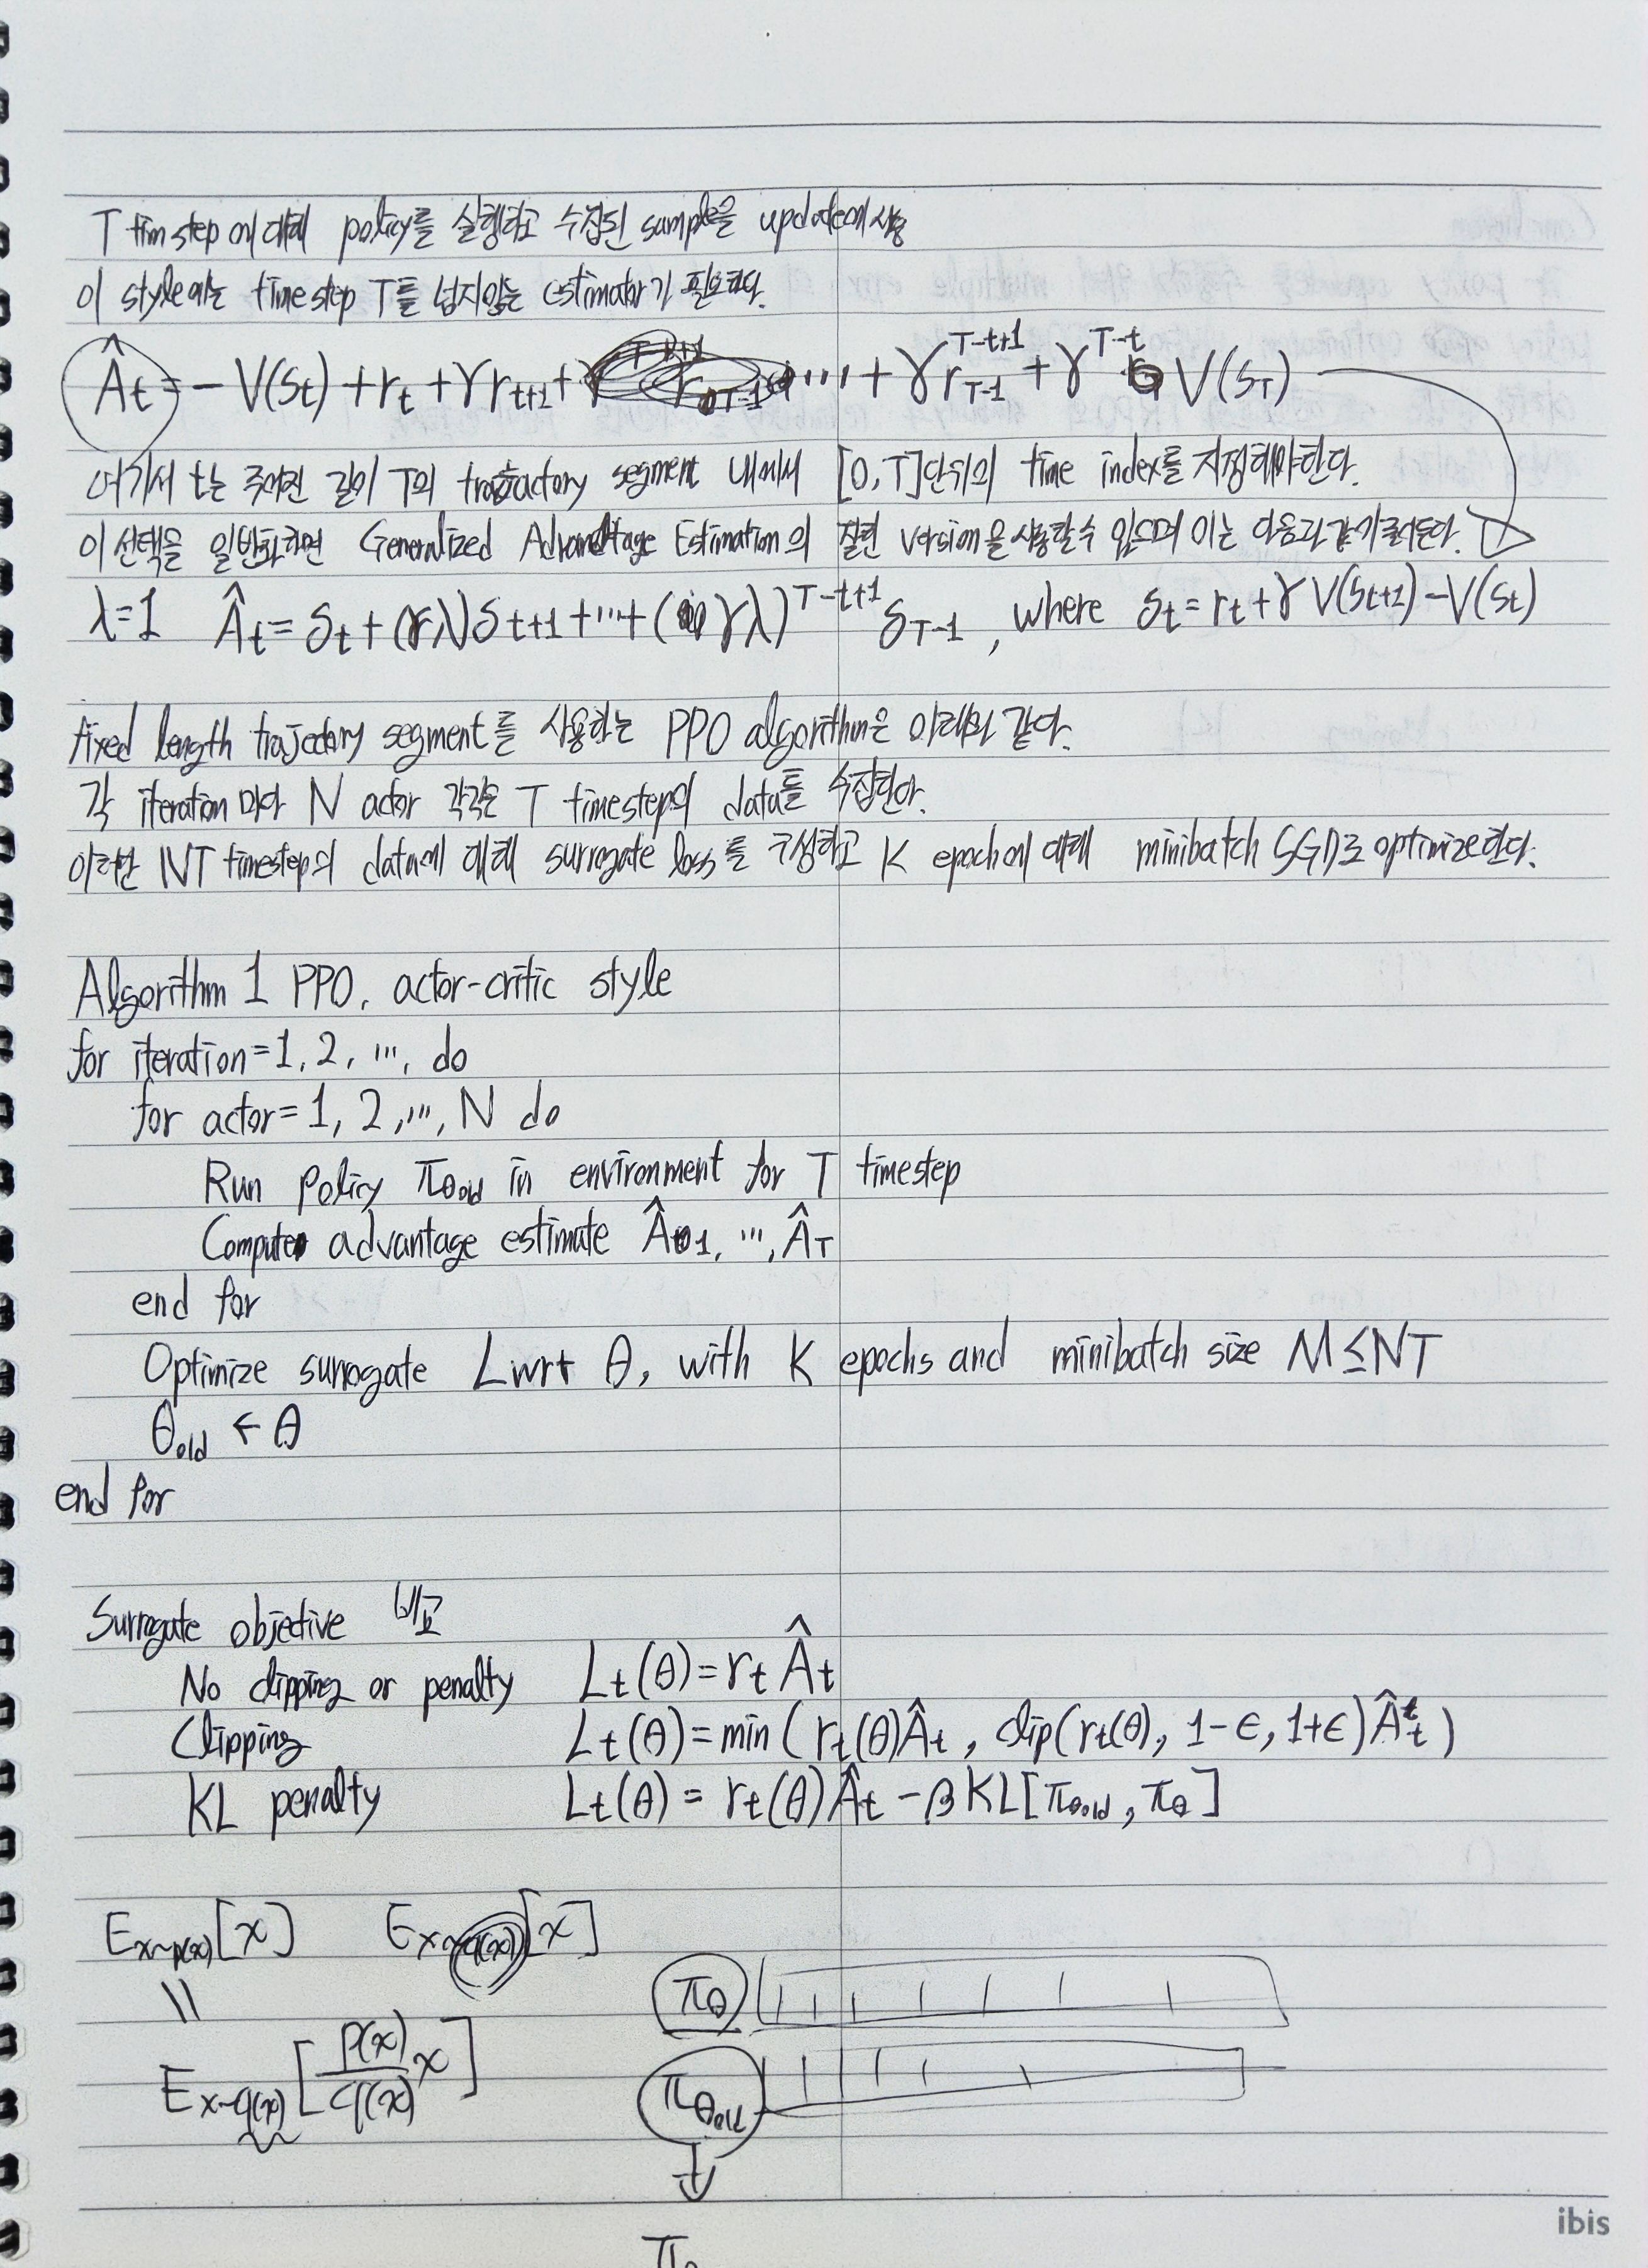 T tim step에 대해 policy를 실행하고 수집된 sample을 update에 사용
이 style에는 timestep T를 넘지않는 estimator가 필요하다.
Â_t = - V(s_t) + r_t + γr_{t+1} + ... + γ^{T-t+1} r_{T-1} + γ^{T-t} V(s_T)
여기서 t는 주어진 길이 T의 trajactory segment 내에서 [0,T]단위의 time index를 지정해야한다.
이 선택을 일반화하면 Generalized Advantage Estimation의 잘린 version을 사용할 수 있으며 이는 다음과 같다.
λ=1 Â_t = δ_t + (γλ)δ_{t+1} + ... + (γλ)^{T-t+1} δ_{T-1}, where δ_t = r_t + γV(s_{t+1}) - V(s_t)
fixed length trajectory segment를 사용하는 PPO algorithm은 아래와 같다.
각 iteration 마다 N actor 각각은 T timestep의 data를 수집한다.
이러한 NT timestep의 data에 대해 surrogate loss를 구성하고 K epoch에 대해 minibatch SGD로 optimize한다.
Algorithm 1 PPO, actor-critic style
for iteration=1, 2, ..., do
for actor=1, 2, ..., N do
Run policy π_θold in environment for T timestep
Compute advantage estimate Â_1, ..., Â_T
end for
Optimize surrogate L wrt θ, with K epochs and minibatch size M ≤ NT
θ_old ← θ
end for
Surrogate objective 비교
No clipping or penalty L_t(θ) = r_t Â_t
Clipping L_t(θ) = min(r_t(θ)Â_t, clip(r_t(θ), 1-ε, 1+ε)Â_t)
KL penalty L_t(θ) = r_t(θ)Â_t - βKL[π_θold, π_θ]
E_{x~p(x)}[x] E_{x~q(x)}[x]
=
E_{x~q(x)}[p(x)/q(x) x]
π_θ
π_θold
ibis